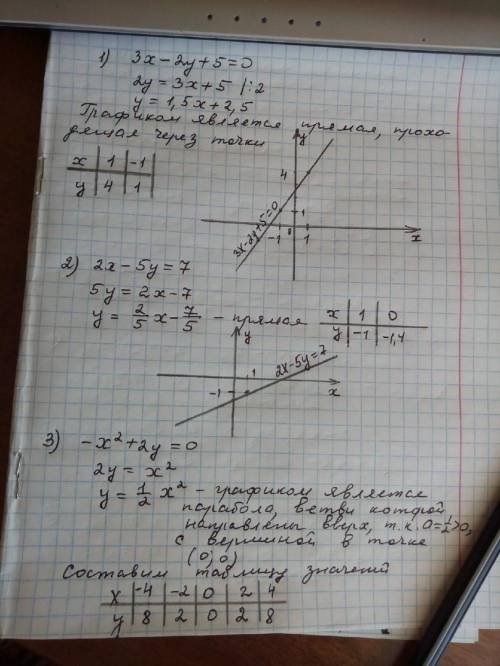 1) 3x-2y+5=0
2y=3x+5 |:2
y=1,5x+2,5
Графиком является прямая, прохо-
дящая через точки
x | 1 | -1
y | 4 | 1
y
4
1
-1 0 1
x
3x-2y+5=0
2) 2x-5y=7
5y=2x-7
y= 2/5 x - 7/5 - прямая
x | 1 | 0
y | -1 | -1,4
y
1
2x-5y=7
-1
x
3) -x²+2y=0
2y=x²
y= 1/2 x² - графиком является
парабола, ветви которой
направлены вверх, т.к. a=1/2>0,
с вершиной в точке
(0;0)
Составим таблицу значений
x | -4 | -2 | 0 | 2 | 4
y | 8 | 2 | 0 | 2 | 8